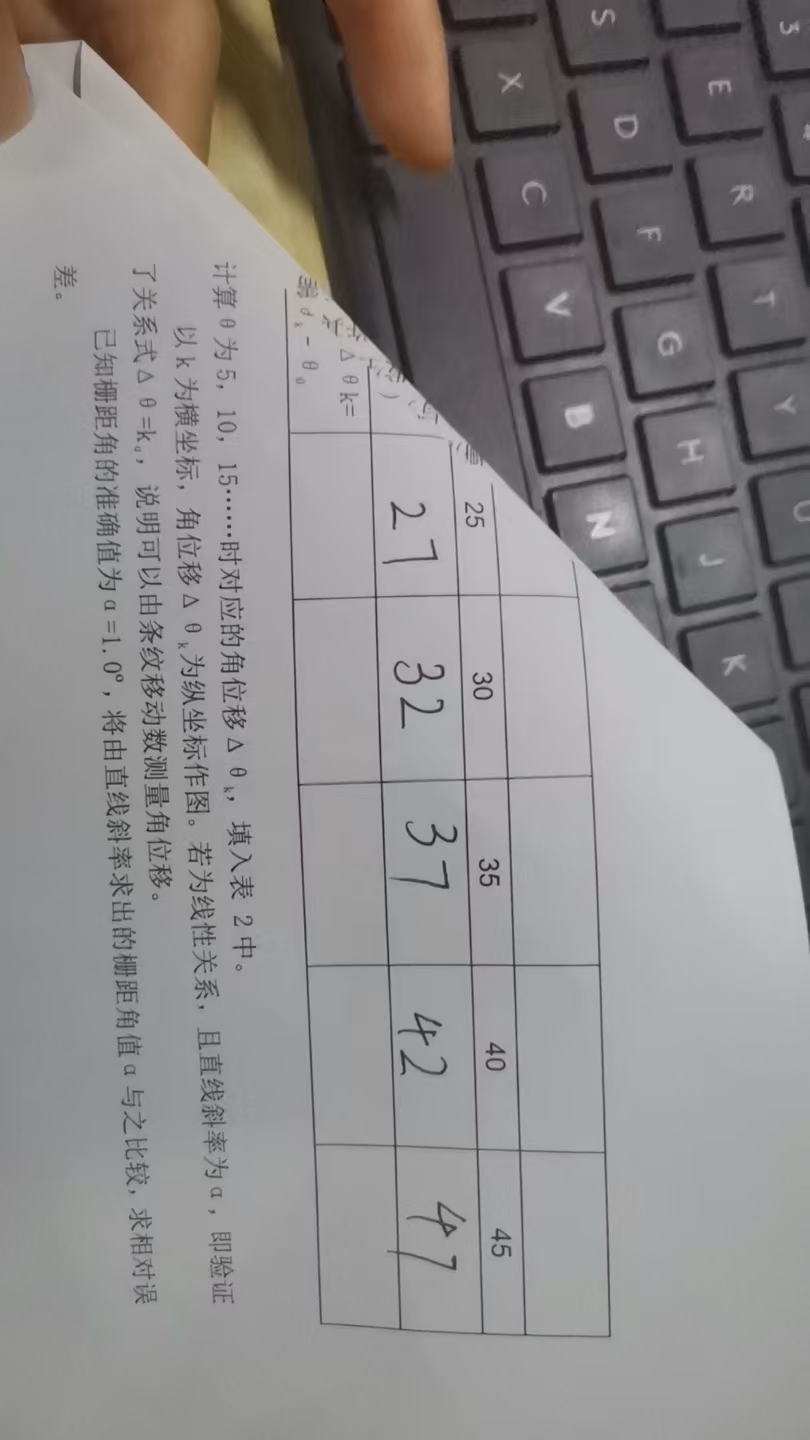 25 30 35 40 45
27 32 37 42 47
Δθk=
θk-θ0
计算θ为5，10，15……时对应的角位移Δθk，填入表 2 中。
以k为横坐标，角位移Δθk为纵坐标作图。若为线性关系，且直线斜率为α，即验证
了关系式Δθ=kα，说明可以由条纹移动数测量角位移。
已知栅距角的准确值为α=1.0°，将由直线斜率求出的栅距角值α与之比较，求相对误
差。
3
S
E
X
D
R
C
F
T
V
G
Y
B
H
U
N
J
K